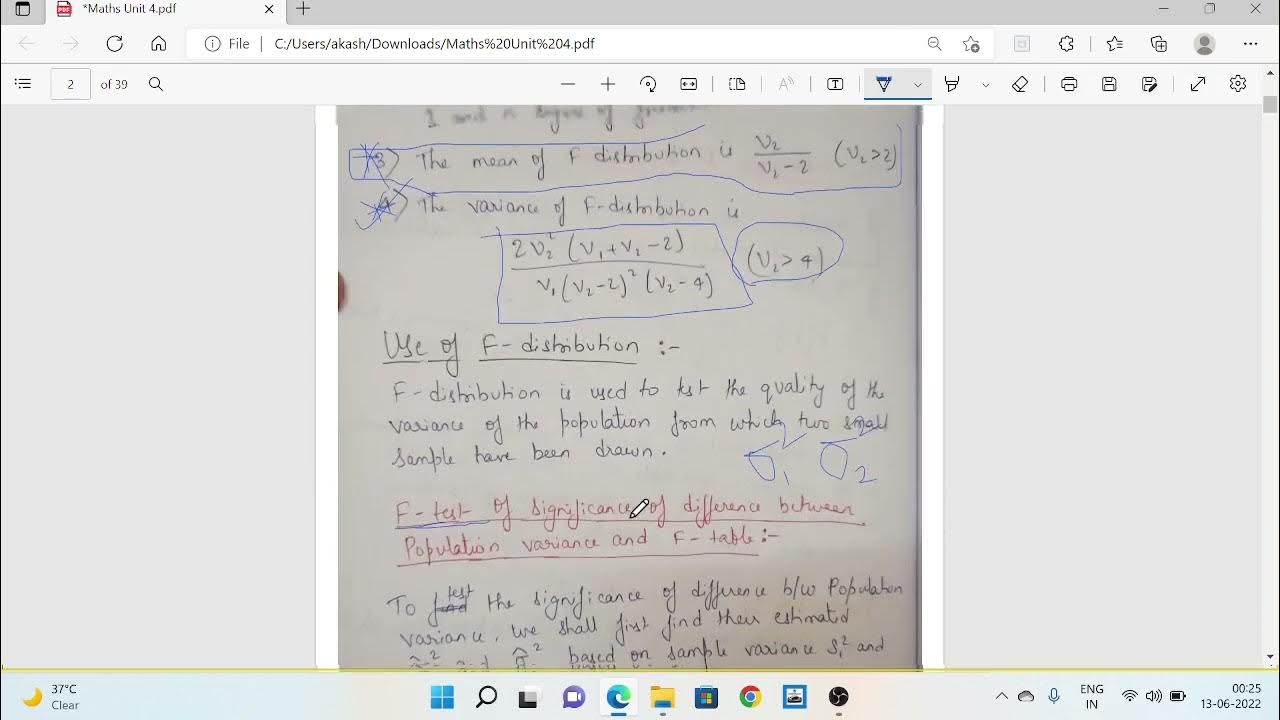 *Maths Unit 4.pdf
File
C:/Users/akash/Downloads/Maths%20Unit%204.pdf
2 of 39
1 and n
3) The mean of F distribution is ν₂/(ν₂-2) (ν₂>2)
4) The variance of F-distribution is
2ν₂² (ν₁+ν₂-2)
ν₁(ν₂-2)² (ν₂-4)
(ν₂> 4)
Use of F-distribution :-
F-distribution is used to test the quality of the
variance of the population from which two small
sample have been drawn.
σ₁ σ₂
F-test of significance of difference between
Population variance and F-table:-
To test the significance of difference b/w Population
variance, we shall first find their estimated
based on sample variance S₁² and
37°C
Clear
ENG
IN
00:25
13-06-2022